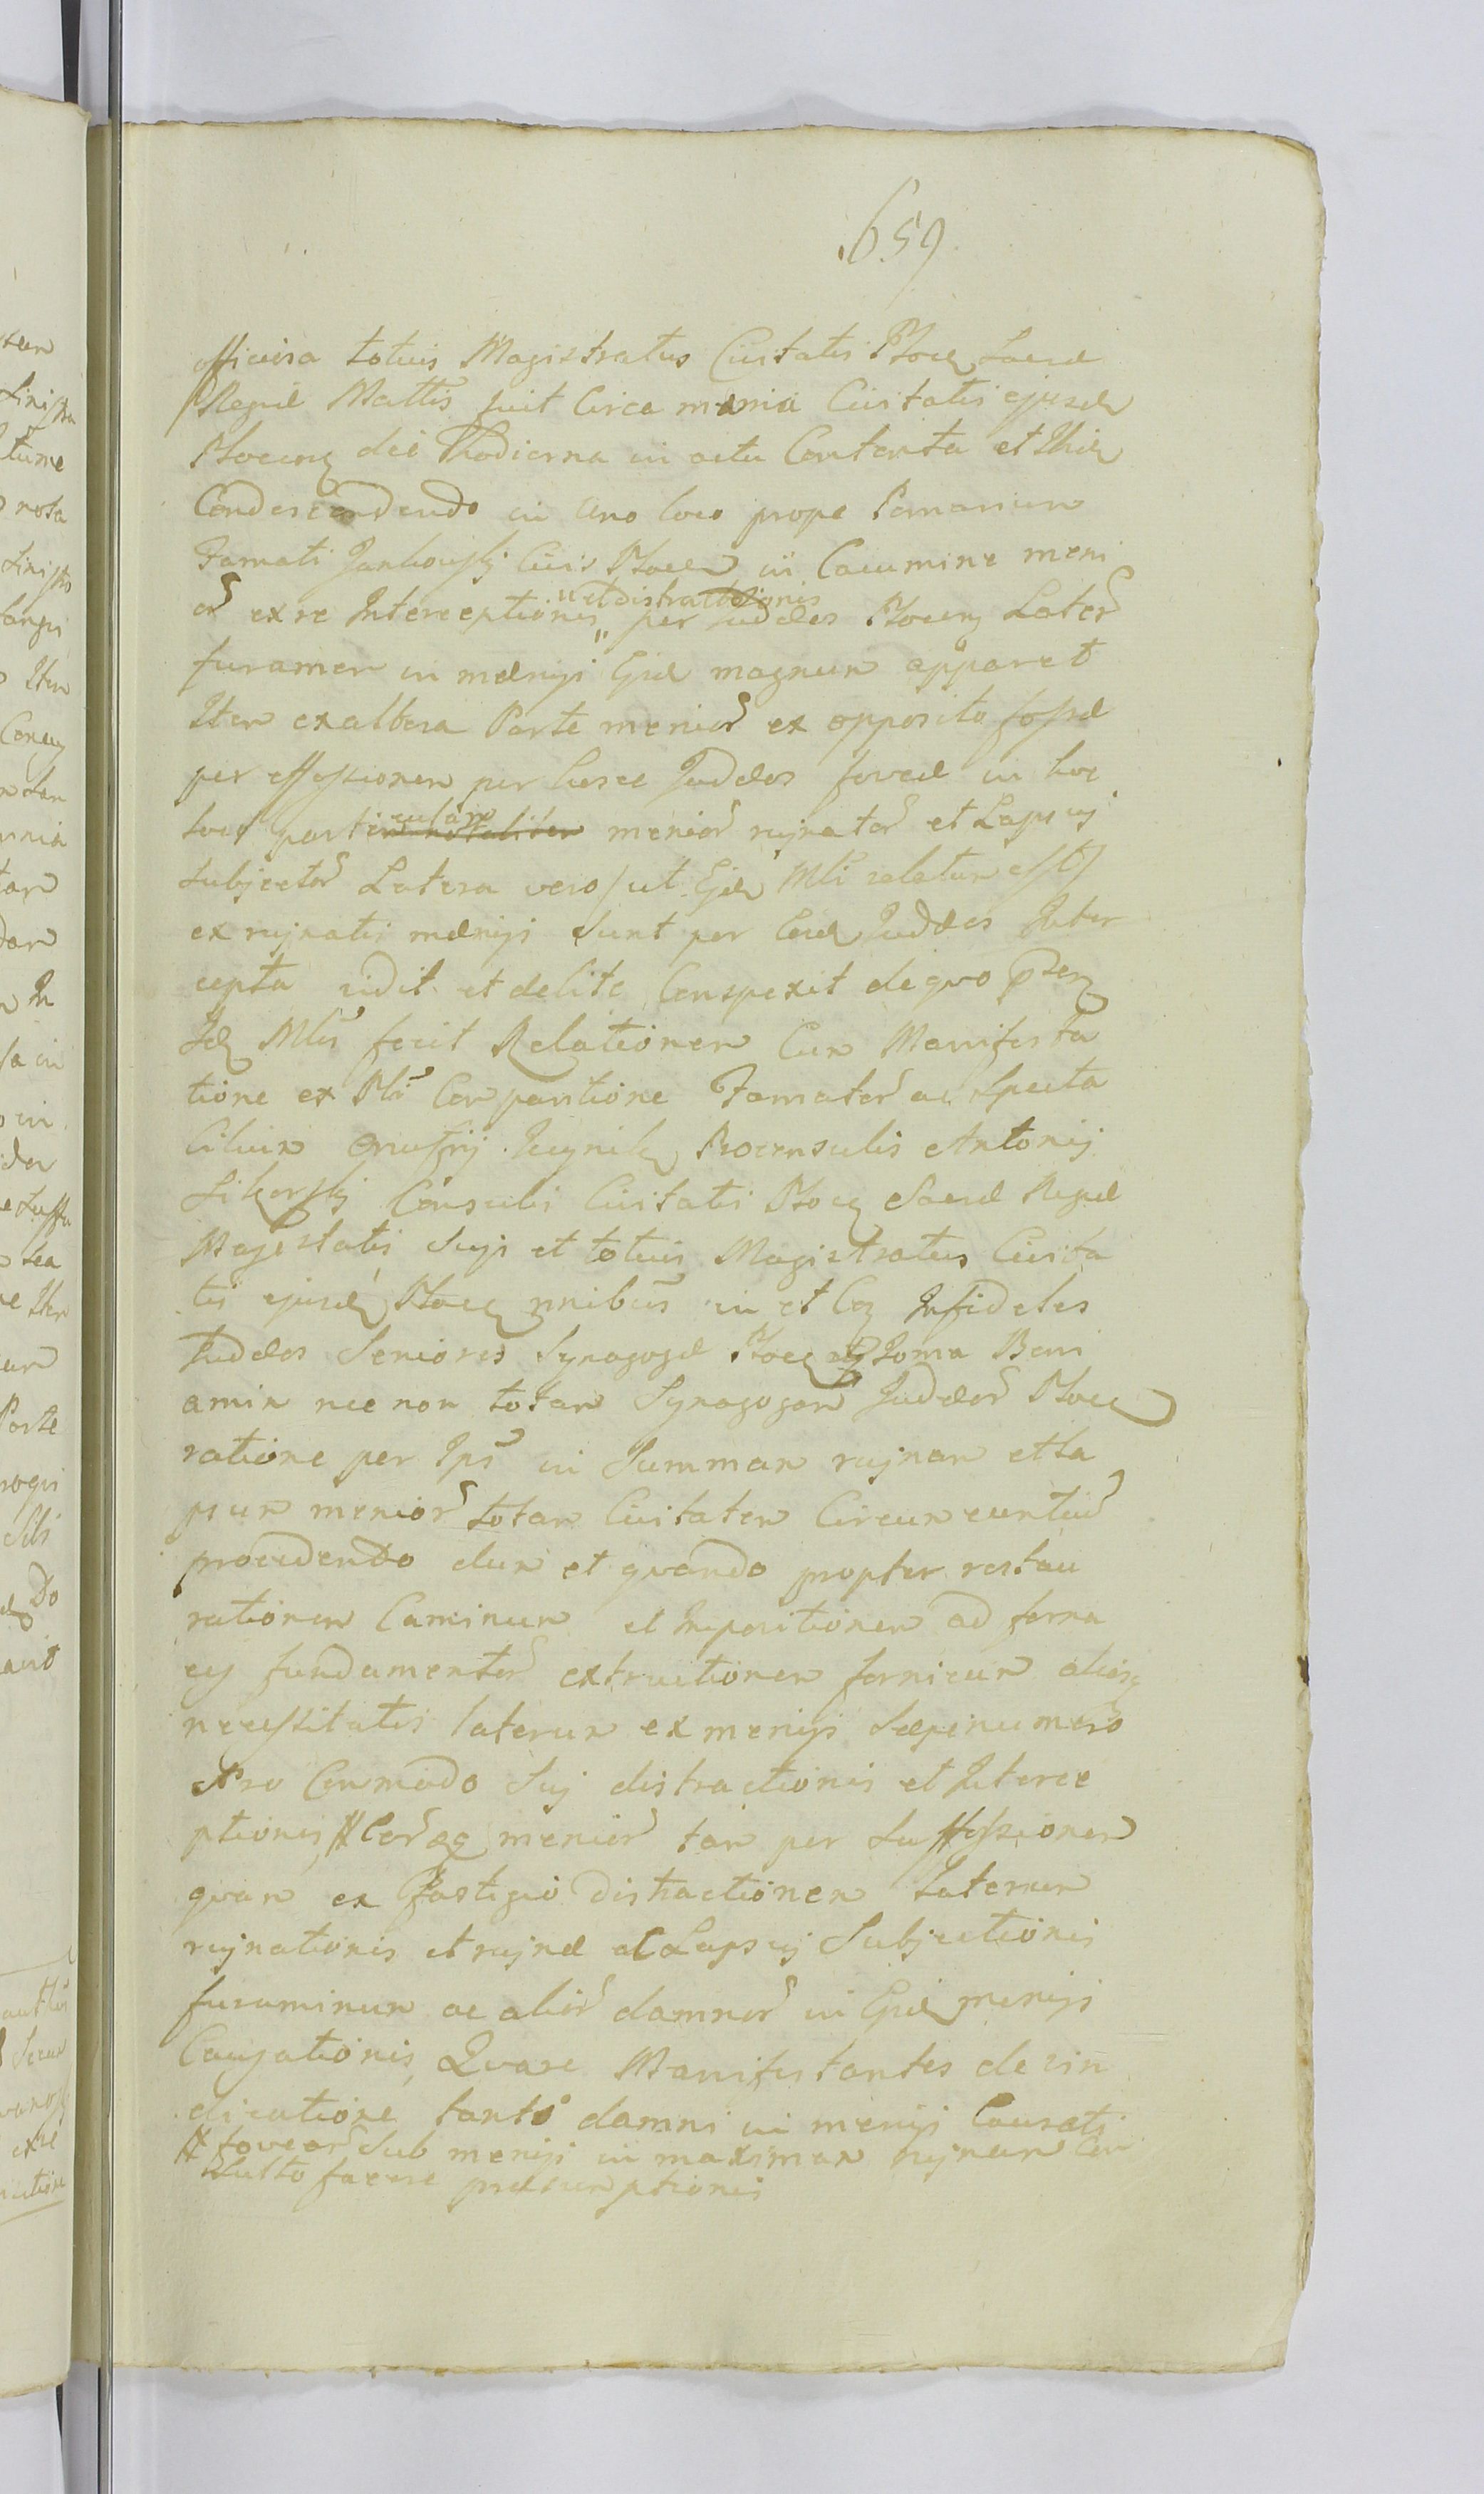 659.
officiosa totius Magistratus Civitatis Plocen Sacræ
Regiæ Mattis fuit Circa mænia Civitatis ejusdem
Plocens die Hodierna in actu Contenta et Ibidem
Condescendendo in Uno loco prope Pomarium
Famati Jankowskj Civis Plocen in Cacumine meni
or ex re Interceptionis " et distractionis per Judæos Plocens Later
foramen in mænijs Ejsd magnum apparet
Item ex altera Parte menior ex opposito fossæ
per effossionem per hosce Judæos foveæ in hoc
loco particularem menior rujnator et Lapsuj
Subjector Latera vero / ut Ejd Mli relatum est /
ex rujnatis mænijs Sunt per Eosd Judæos Inter
cepta vidit et debite Conspexit de quo
Id Mlis fecit Relationem Cum Manifesta
tione ex Comparitione Famator ac Specta
bilium Onufrij Proconsulis Antonij
Sikorskj Consulis Civitatis Ploce Sacræ Regiæ
Majestatis Suji et totius Magistratus Civita
tis ejusd Ploce nnibus in et Cog Infideles
Judæos Seniores Synagogæ Ploce Joma Beni
amin nec non totam Synagogam Judæor Ploce
ratione per Ips in Summam rujnam et la
psum menior totam Civitatem Circumeuntiu
procedendo dum et quando propter restau
rationem Caminum et Impositionem ad forna
ces fundamentor extructionem fornicum alias
necessitatis laterum ex menijs Sæpenumero
Pro Commodo Suj distractionis et Interce
ptionis # menior tam per Suffossionem
quam ex fastigio distractionem Laterum
rujnationis et rujnæ et Lapsuj Subjectionis
foraminum ac alior damnor in Ejsd menijs
Causationis, Quare Manifestantes de vin
dicatione tanti damni in menijs Causati
# fovear Sub menijs in maximam rujnam Con
Sulto facere præsumptionis